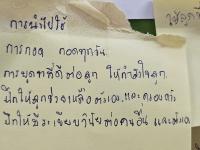 การนำไปใช้
การกอด กอดทุกวัน
การพูดจาที่ดีต่อลูก ให้กำลังใจลูก
ฝึกให้ลูกช่วยเหลือตัวเอง และครอบครัว
ฝึกให้มีระเบียบวินัยต่อคนอื่น และตัวเอง